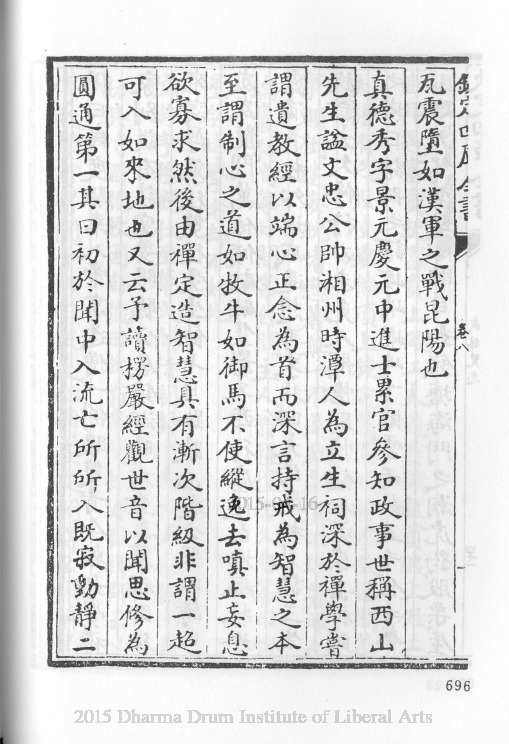 欽定四庫全書
卷八
瓦震墮如漢軍之戰昆陽也
真德秀字景元慶元中進士累官參知政事世稱西山
先生謚文忠公帥湘州時潭人為立生祠深於禪學嘗
謂遺教經以端心正念為首而深言持戒為智慧之本
至謂制心之道如牧牛如御馬不使縱逸去嗔止妄息
欲寡求然後由禪定造智慧具有漸次階級非謂一超
可入如來地也又云予讀楞嚴經觀世音以聞思修為
圓通第一其曰初於聞中入流亡所所入既寂動靜二
696
2015 Dharma Drum Institute of Liberal Arts